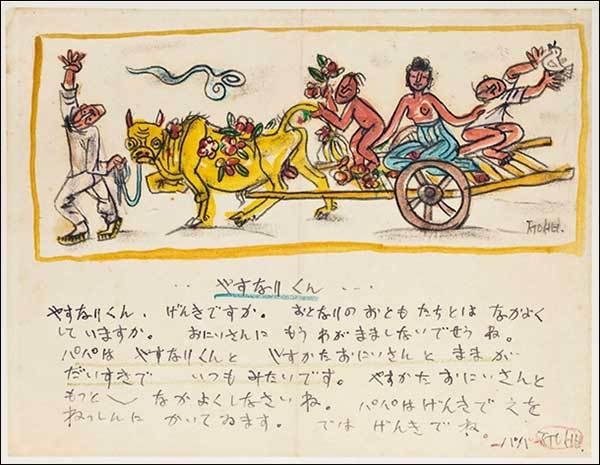 ㅈㅜㅇㅅㅓㅂ.
・・ やすなりくん ・・・
やすなりくん、げんきですか。 おとなりの おともたちとは なかよく
していますか。 おにいさんに もう わがまましないでせう ね。
パパは やすなりくんと やすかたおにいさんと ままが
だいすきで いつもみたいです。 やすかた おにいさんと
もっと〱 なかよくしなさい ね。 パパはげんきで えを
ねっしんに かいてゐます。 では げんきで ね。
パパ ㅈㅜㅇㅅㅓㅂ.